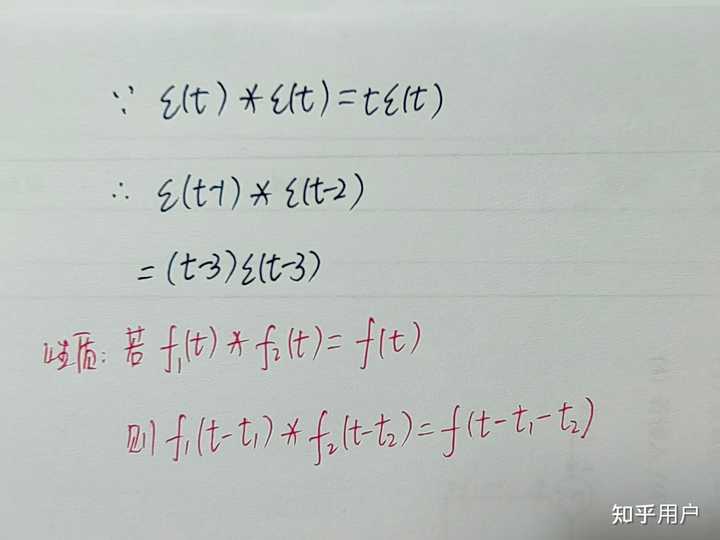 ∵ ε(t) * ε(t) = tε(t)
∴ ε(t-1) * ε(t-2)
= (t-3)ε(t-3)
性质: 若 f₁(t) * f₂(t) = f(t)
则 f₁(t-t₁) * f₂(t-t₂) = f(t-t₁-t₂)
知乎用户